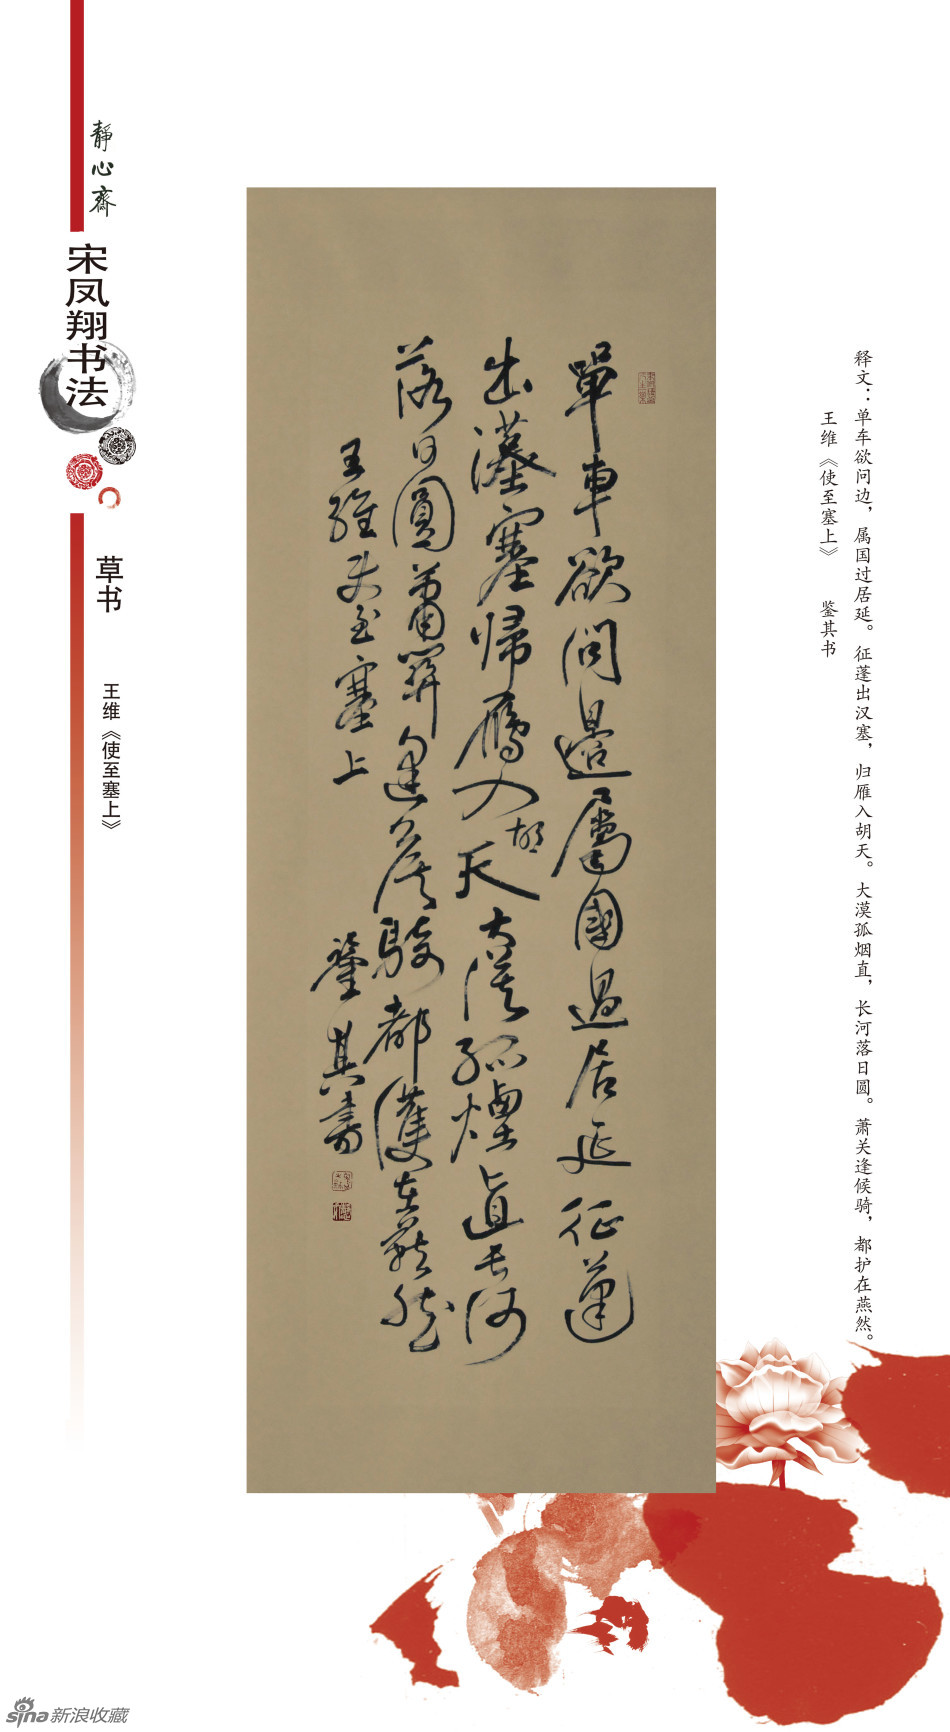 釋文：单车欲问边，属国过居延。征蓬出汉塞，归雁入胡天。大漠孤烟直，长河落日圆。萧关逢候骑，都护在燕然。
王维《使至塞上》 鉴其书
單車欲問邊屬國過居延征蓬
出漢塞歸雁入天大漠孤煙直長河
胡
落日圓蕭關逢候騎都護在燕然
王維使至塞上
鑒其書
靜心齋
宋凤翔书法
草书
王维《使至塞上》
sina新浪收藏